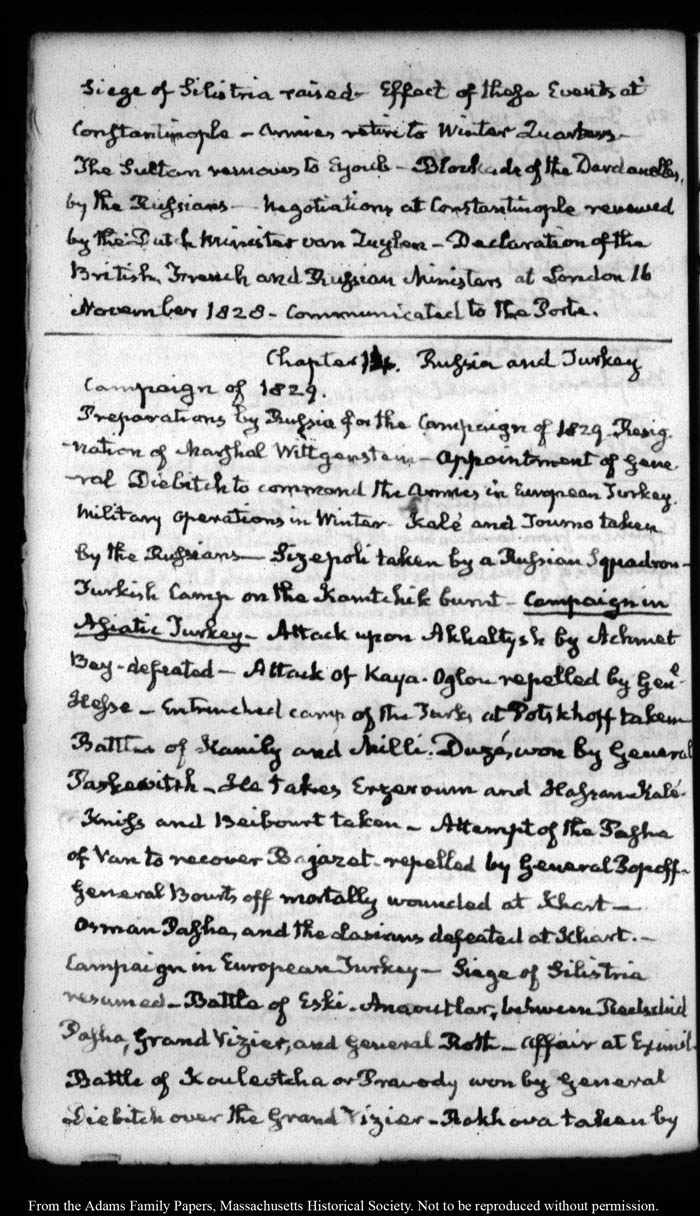 Siege of Silistria raised – Effect of these Events at
Constantinople – Armies retire to Winter Quarters –
The Sultan removes to Eyoub – Blockade of the Dardanelles,
by the Russians – Negotiations at Constantinople renewed
by the Dutch Minister van Zuylen – Declaration of the
British, French and Russian Ministers at London 16
November 1828 – Communicated to the Porte.
Chapter 14. Russia and Turkey
Campaign of 1829.
Preparations by Russia for the Campaign of 1829. Resig
nation of Marshal Wittgenstein – Appointment of Gene
ral Diebitch to command the Armies in European Turkey.
Military operations in Winter – Kalé and Tourno taken
by the Russians – Sizepoli taken by a Russian Squadron –
Turkish Camp on the Kamtchik burnt – Campaign in
Asiatic Turkey – Attack upon Akhaltysk by Achmet
Bey – defeated – Attack of Kaya-Oglou repelled by Genl
Hesse – Entrenched camp of the Turks at Potskhoff taken
Battles of Kanily and Milli-Duzé, won by General
Paskewitch – He takes Erzeroum and Hassan-Kalé
Kniss and Beibourt taken – Attempt of the Pasha
of Van to recover Bajazet – repelled by General Popoff –
General Bourtsoff mortally wounded at Khart –
Osman Pasha, and the Lasians defeated at Khart. –
Campaign in European Turkey – Siege of Silistria
resumed – Battle of Eski-Arnoutlar, between Redschid
Pasha, Grand Vizier, and General Roth – Affair at Eximil.
Battle of Kouleotcha or Pravody won by General
Diebitch over the Grand Vizier – Rakhova taken by
From the Adams Family Papers, Massachusetts Historical Society. Not to be reproduced without permission.